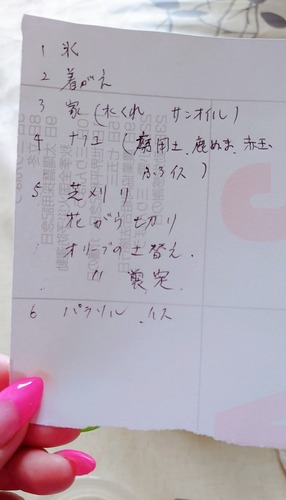 1 氷
2 着がえ
3 家(れくれ サンオイル)
4 ナフコ(腐用土、鹿ぬま、赤玉
ふろイス)
5 芝刈り
花がら切り
オリーブの土替え
〃 剪定
6 パラソル、イス